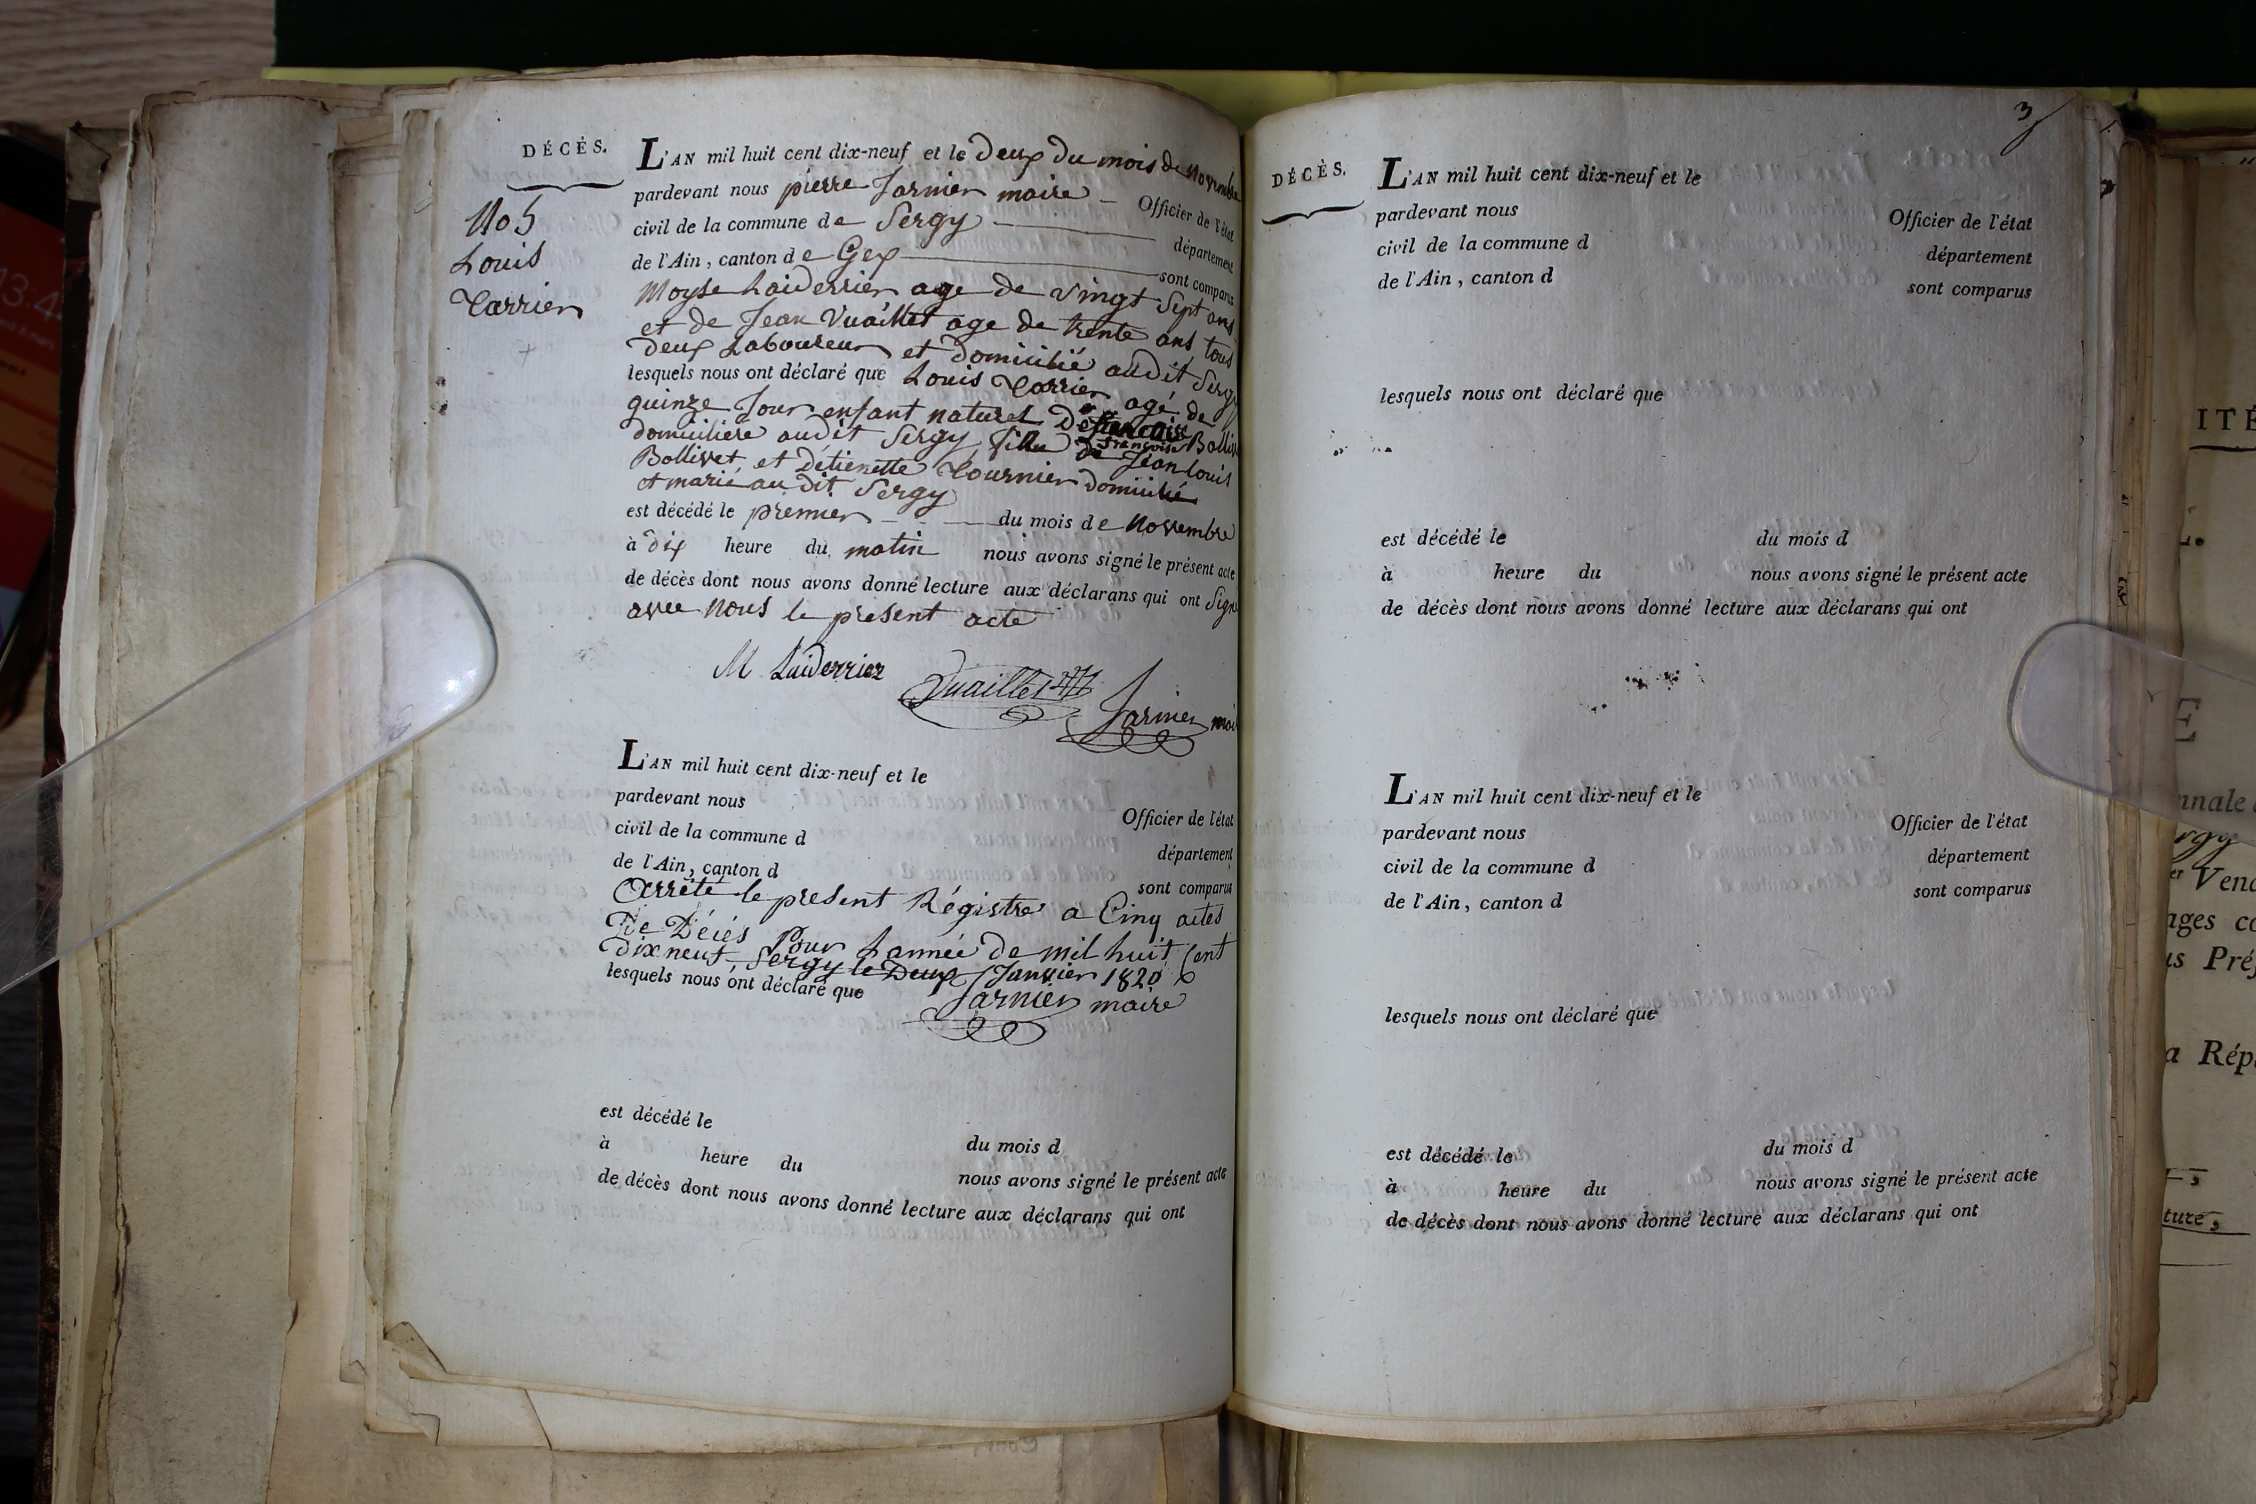 DÉCÈS.
No 5
Louis
Carrier
L'AN mil huit cent dix-neuf et le deux du mois de Novembre
pardevant nous pierre Jarnier maire Officier de l'état
civil de la commune de Sergy département
de l'Ain, canton de Gex sont comparus
Moyse Laiderrier age de vingt Sept ans
et de Jean Vuaillet age de trente ans tous
deux Laboureur et domicilié audit Sergy
lesquels nous ont déclaré que Louis Carrier agé de
quinze Jour enfant naturel De francoise
domiciliére audit Sergy fille de Jean louis
Bollivet et Détienette Tournier domicilié
et marié audit Sergy
est décédé le premier du mois de Novembre
à dix heure du matin nous avons signé le présent acte
de décès dont nous avons donné lecture aux déclarans qui ont Signé
avec Nous le present acte
M Laiderrier
Vuaillet
Jarnier maire
L'AN mil huit cent dix-neuf et le
pardevant nous Officier de l'état
civil de la commune d département
de l'Ain, canton d sont comparus
Arrêté le present Régistre a Cinq actes
De Décés Pour Lannée de mil huit Cent
Dix neuf, Sergy le Deux Janvier 1820
lesquels nous ont déclaré que
Jarnier maire
est décédé le du mois d
à heure du nous avons signé le présent acte
de décès dont nous avons donné lecture aux déclarans qui ont
3
DÉCÈS.
L'AN mil huit cent dix-neuf et le
pardevant nous Officier de l'état
civil de la commune d département
de l'Ain, canton d sont comparus
lesquels nous ont déclaré que
est décédé le du mois d
à heure du nous avons signé le présent acte
de décès dont nous avons donné lecture aux déclarans qui ont
L'AN mil huit cent dix-neuf et le
pardevant nous Officier de l'état
civil de la commune d département
de l'Ain, canton d sont comparus
lesquels nous ont déclaré que
est décédé le du mois d
à heure du nous avons signé le présent acte
de décès dont nous avons donné lecture aux déclarans qui ont